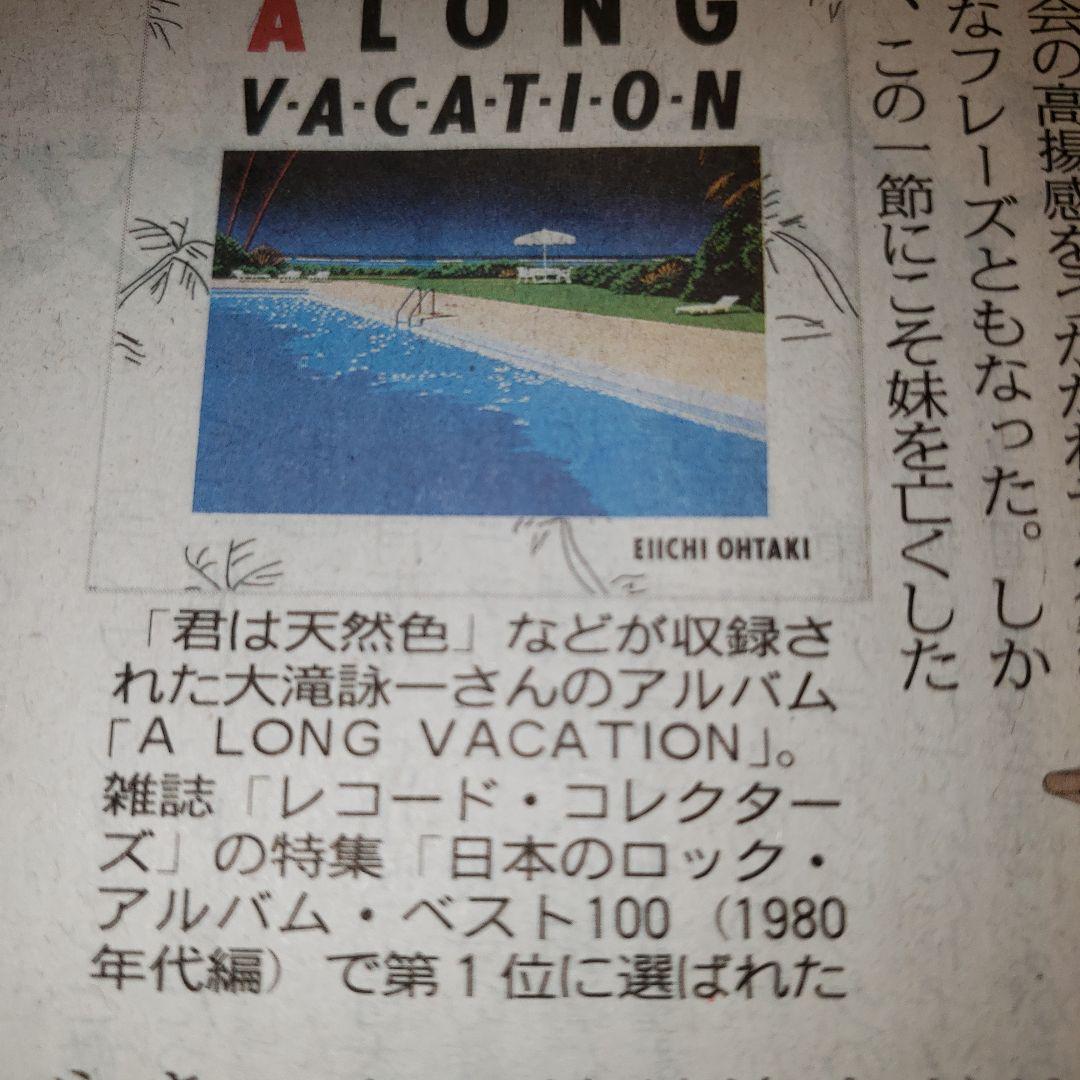 A LONG
V·A·C·A·T·I·O·N
EIICHI OHTAKI
「君は天然色」などが収録さ
れた大滝詠一さんのアルバム
「A LONG VACATION」。
雑誌「レコード・コレクター
ズ」の特集「日本のロック・
アルバム・ベスト100（1980
年代編）で第1位に選ばれた
会の高揚感を
なフレーズともなった。しか
、この一節にこそ妹を亡くした